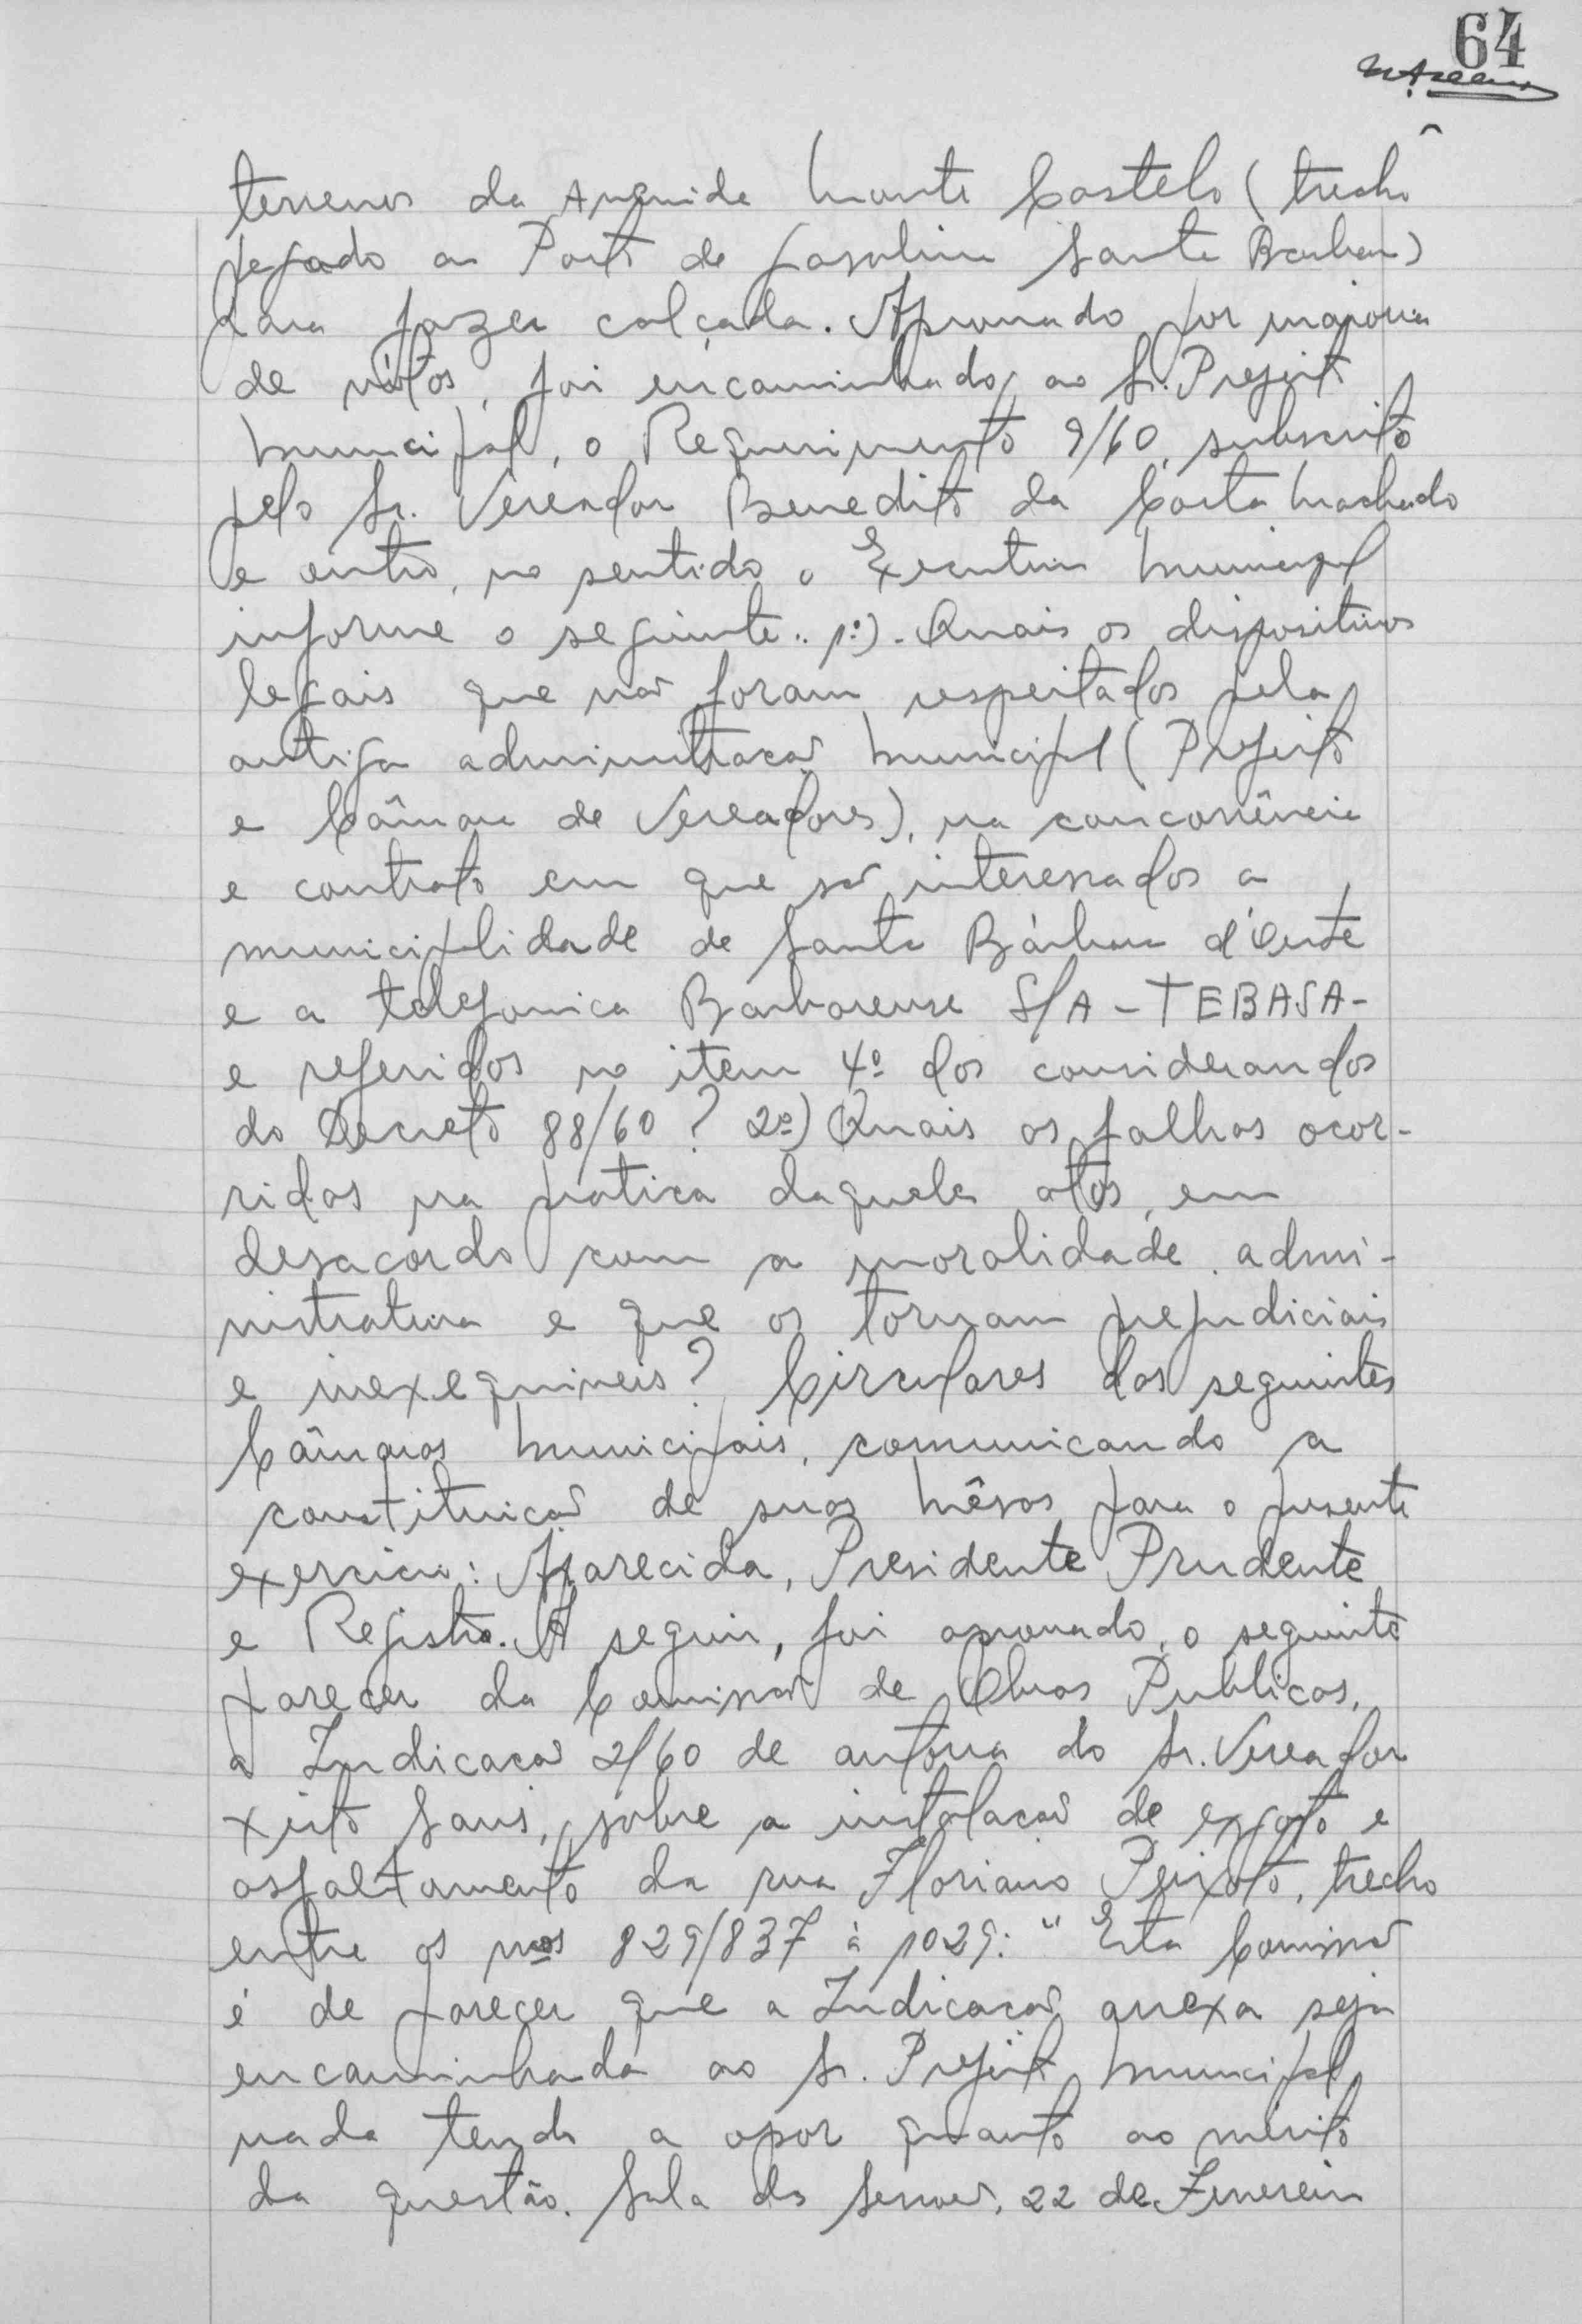 64
terrenos da Avenida Monte Castelo (trecho
pegado ao Posto de gasolina Santa Barbara)
para fazer calçada. Aprovado por maioria
de vótos, foi encaminhado, ao Sr. Prefeito
Municipal, o Requerimento 9/60, subscrito
pelo Sr. Vereador Benedito da Costa Machado
e outro, no sentido o Executivo Municipal
informe o seguinte: 1º) - Quais os dispositivos
legais que não foram respeitados pela
antiga administração Municipal (Prefeito
e Câmara de Vereadores), na concorrência
e contrato em que são interessados a
municipalidade de Santa Bárbara d'Oeste
e a telefonica Barbarense S/A - TEBASA -
e referidos no item 4º dos considerandos
do Decreto 88/60? 2º) Quais as falhas ocor-
ridas na pratica daqueles atos, em
desacôrdo com a moralidade admi-
nistrativa e que os tornam prejudiciais
e inexequiveis? Circulares das seguintes
Câmaras Municipais, comunicando a
constituição de suas Mêsas para o presente
exercicio: Aparecida, Presidente Prudente
e Registro. A seguir, foi aprovado, o seguinte
parecer da Comissão de Obras Publicas,
a Indicação 2/60 de autoria do Sr. Vereador
Xisto Sans, sobre a instalação de esgoto e
asfaltamento da rua Floriano Peixoto, trecho
entre os nºs 829/837 à 1029: "Esta Comissão
é de parecer que a Indicação anexa seja
encaminhada ao Sr. Prefeito Municipal
nada tendo a opor quanto ao mérito
da questão. Sala das Sessões, 22 de Fevereiro